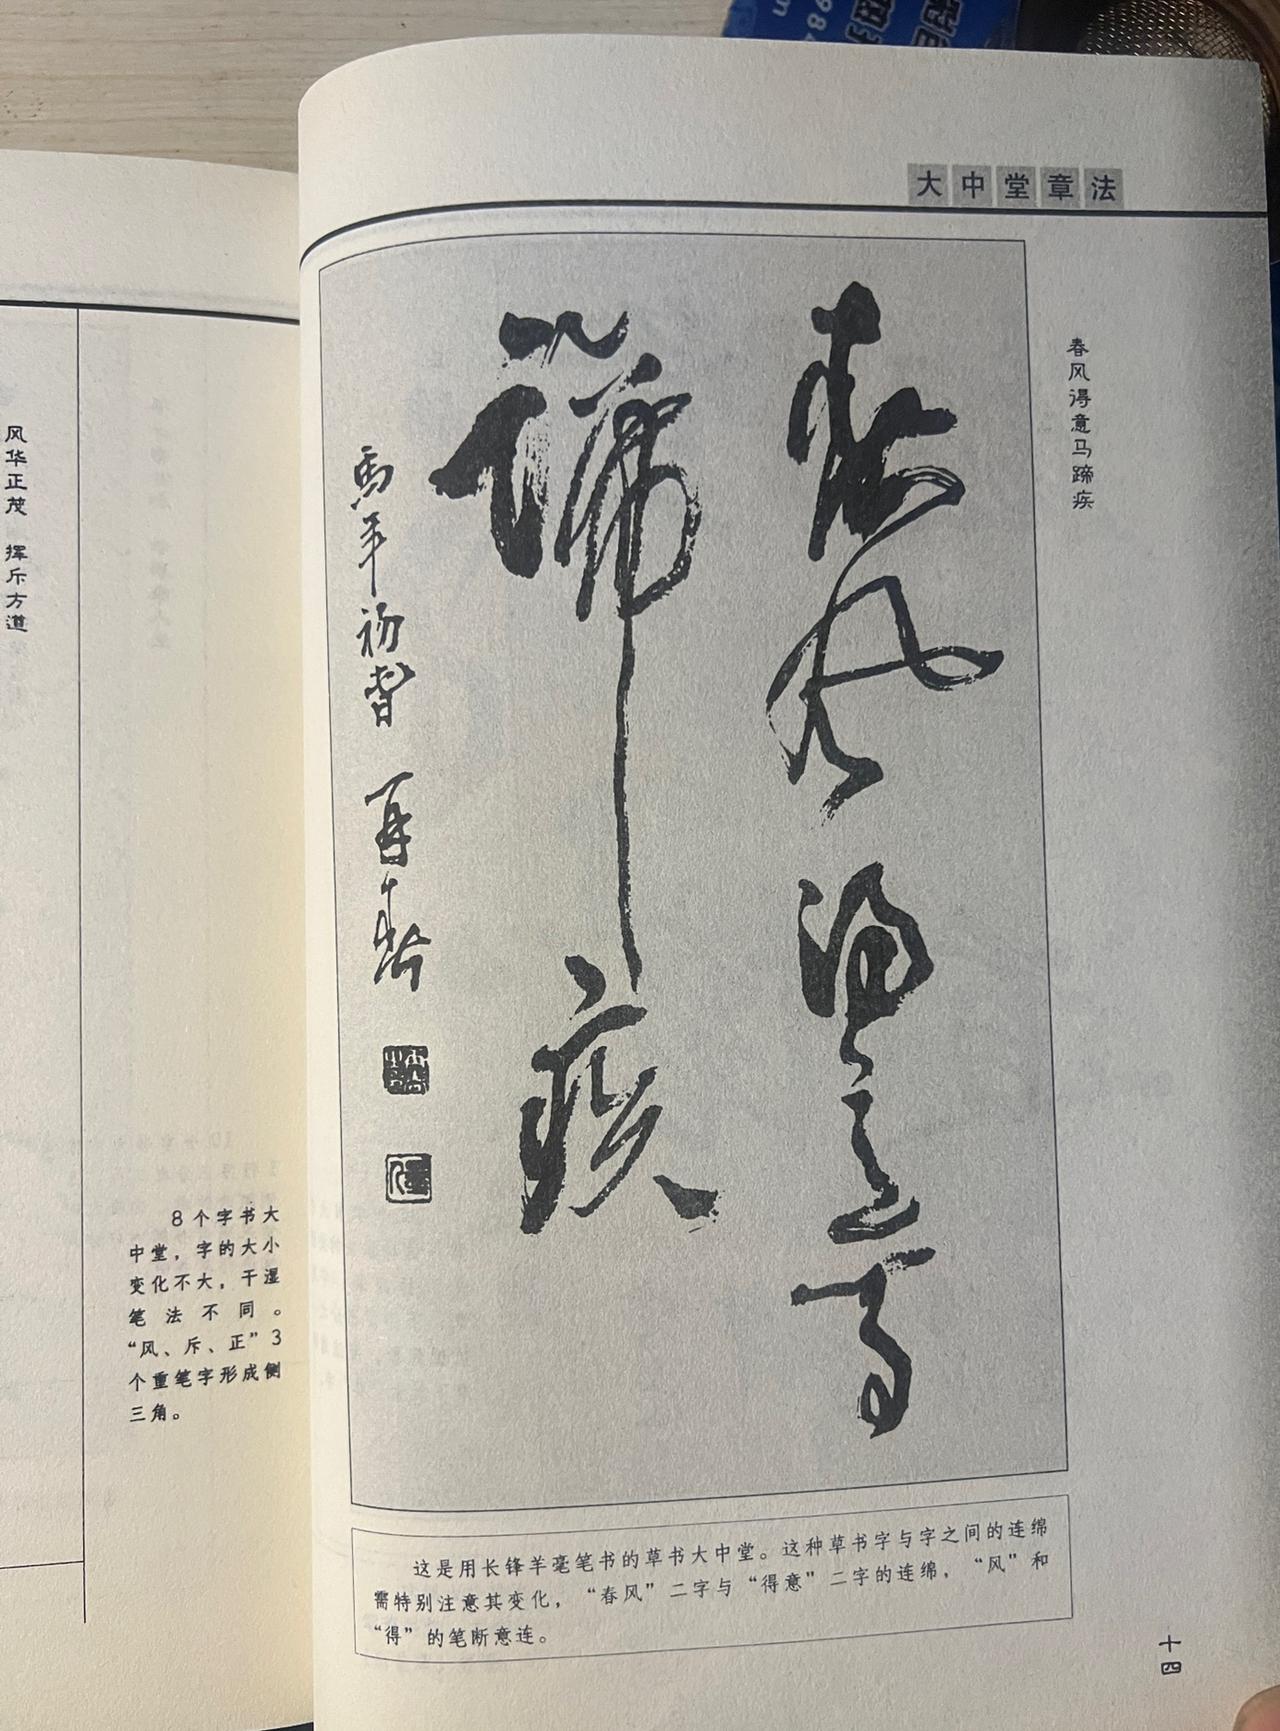 大中堂章法
春风得意马蹄疾
春风得意马
蹄疾
馬年初春
再春
这是用长锋羊毫笔书的草书大中堂。这种草书字与字之间的连绵
需特别注意其变化，“春风”二字与“得意”二字的连绵，“风”和
“得”的笔断意连。
十四
风华正茂 挥斥方遒
8个字书大
中堂，字的大小
变化不大，干湿
笔法不同。
“风、斥、正”3
个重笔字形成侧
三角。